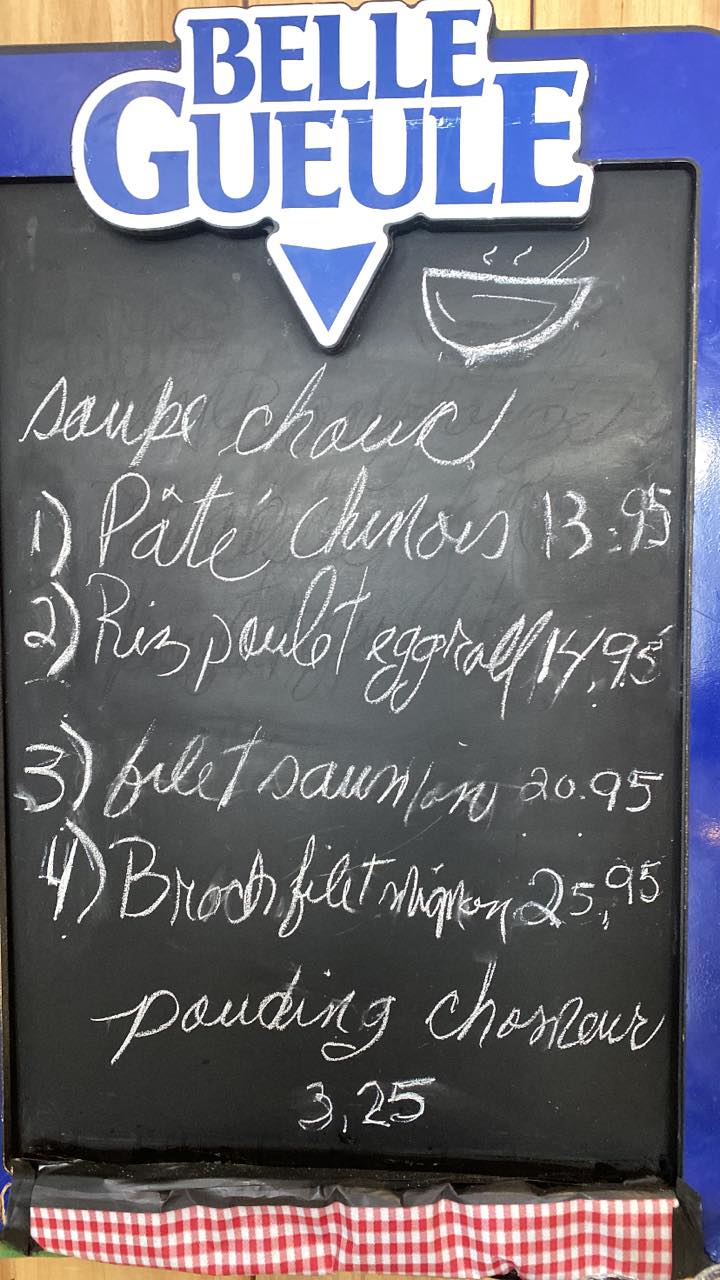 BELLE
GUEULE
soupe choux
1) Pâté chinois 13.95
2) Riz poulet eggroll 14.95
3) filet saumon 20.95
4) Broch filet mignon 25,95
pouding chomeur
3,25